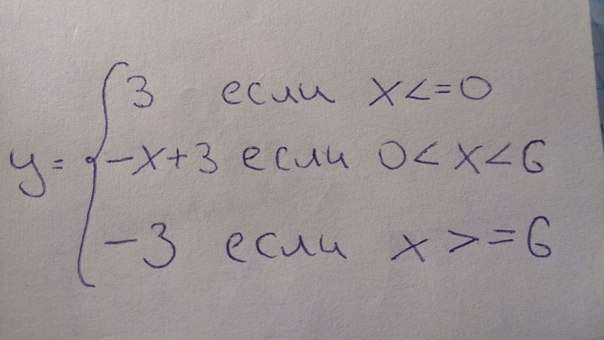 3 если x<=0
y= -x+3 если 0<x<6
-3 если x>=6